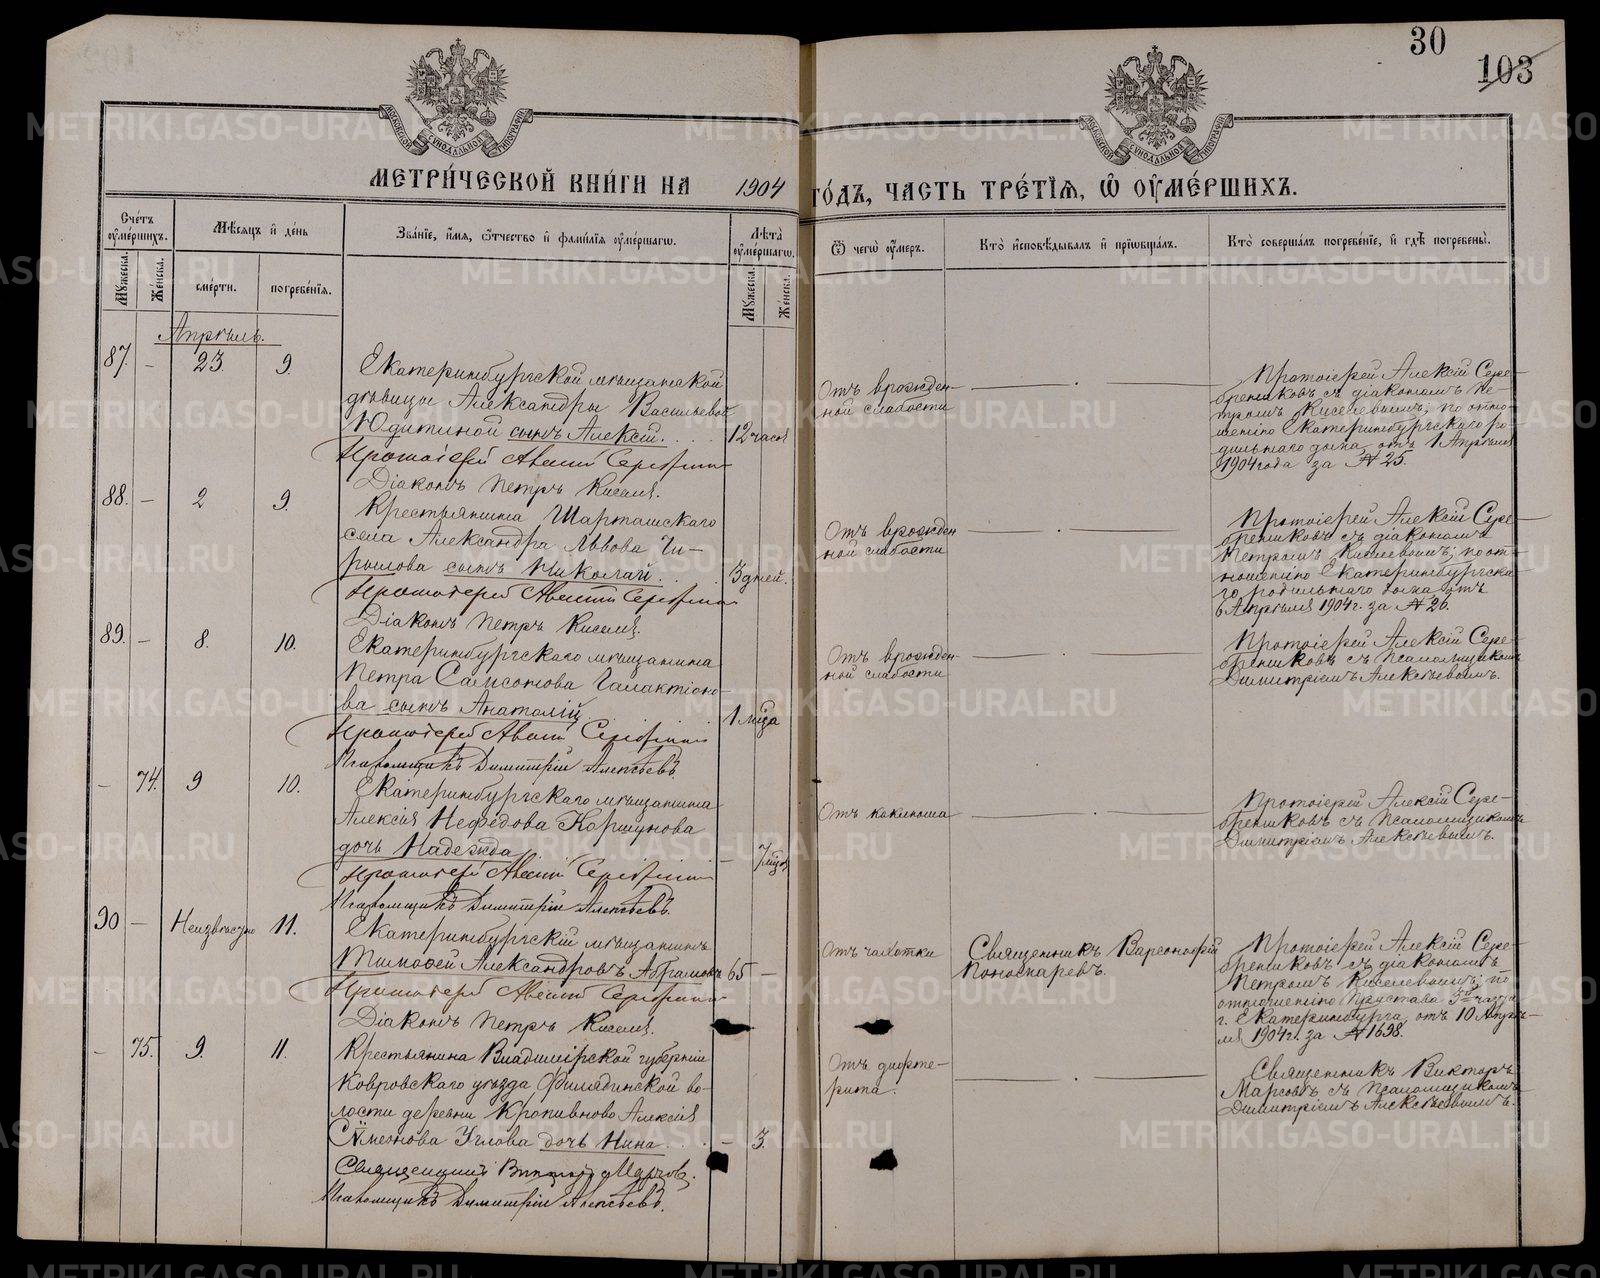 30
103
МОСКОВСКОЙ СѴНОДАЛЬНОЙ ТИПОГРАФІИ
МОСКОВСКОЙ СѴНОДАЛЬНОЙ ТИПОГРАФІИ
МЕТРИ́ЧЕСКОЙ КНИ́ГИ НА 1904 ГО́ДЪ, ЧАСТЬ ТРЕ́ТІѦ, Ѽ ОУ҆МЕ́РШИХЪ.
Сче́тъ оу҆ме́ршихъ.
Мꙋжеска.
Же́нска.
Мѣ́сѧцъ и҆ де́нь
сме́рти.
погребе́нїѧ.
Зва́нїе, и҆́мѧ, ѻ҆́тчество и҆ фами́лїѧ оу҆ме́ршагѡ.
Лѣ́та оу҆ме́ршагѡ.
Мꙋжеска.
Же́нска.
Ѿ чегѡ̀ оу҆́меръ.
Кто̀ и҆сповѣ́дывалъ и҆ прїѡбща́лъ.
Кто̀ соверша́лъ погребе́нїе, и҆ гдѣ̀ погребены̀.
Апрѣль.
87. – 23. 9.
Екатеринбургской мѣщанской
дѣвицы Александры Васильевой
Юдитиной сынъ Алексій.
12 часов
Протоіерей Алексій Серебренни
Діаконъ Петръ Киселев.
Отъ врожден-
ной слабости
Протоіерей Алексій Сере-
бренниковъ съ діакономъ Пе-
тромъ Киселевымъ; по отно-
шенію Екатеринбургскаго ро-
дильнаго дома отъ 1 Апрѣля
1904 года за № 25.
88. – 2 9.
Крестьянина Шарташскаго
села Александра Львова Чи-
рылова сынъ Николай.
3 дней.
Протоіерей Алексій Серебренни
Діаконъ Петръ Киселев.
Отъ врожден
ной слабости
Протоіерей Алексій Сере-
бренниковъ съ діакономъ
Петромъ Киселевымъ; по от-
ношенію Екатеринбургска-
го родильнаго дома отъ
6 Апрѣля 1904 г. за № 26.
89. – 8. 10.
Екатеринбургскаго мѣщанина
Петра Самсонова Галактіоно-
ва сынъ Анатолій
1 мца
Протоіерей Алексій Серебренни
Псаломщикъ Димитрій Алексѣевъ.
Отъ врожден-
ной слабости
Протоіерей Алексій Сере-
бренниковъ съ Псаломщикомъ
Димитріемъ Алексѣевымъ.
– 74. 9 10.
Екатеринбургскаго мѣщанина
Алексія Нефедова Коршунова
дочь Надежда
– 7 мцев
Протоіерей Алексій Серебренни
Псаломщикъ Димитрій Алексѣевъ.
Отъ коклюша
Протоіерей Алексій Сере-
бренниковъ съ Псаломщикомъ
Димитріемъ Алексѣевымъ.
90 – Неизвѣстно 11.
Екатеринбургскій мѣщанинъ
Тимофей Александровъ Абрамовъ
65 –
Протоіерей Алексій Серебренни
Діаконъ Петръ Киселев.
Отъ чахотки
Священникъ Варсонофій
Пономаревъ.
Протоіерей Алексій Сере-
бренниковъ съ діакономъ
Петромъ Киселевымъ; по
отношенію Пристава 3й части
г. Екатеринбурга, отъ 10 Апрѣ-
ля 1904 г. за № 1698.
– 75. 9. 11.
Крестьянина Владимірской губерніи
Ковровскаго уѣзда Филяндинской во-
лости деревни Кропивново Алексія
Сѵмеонова Углова дочь Нина.
– 3.
Священникъ Викторъ Марсовъ.
Псаломщикъ Димитрій Алексѣевъ.
Отъ дифте-
рита.
Священникъ Викторъ
Марсовъ съ Псаломщикомъ
Димитріемъ Алексѣевымъ.
METRIKI.GASO-URAL.RU